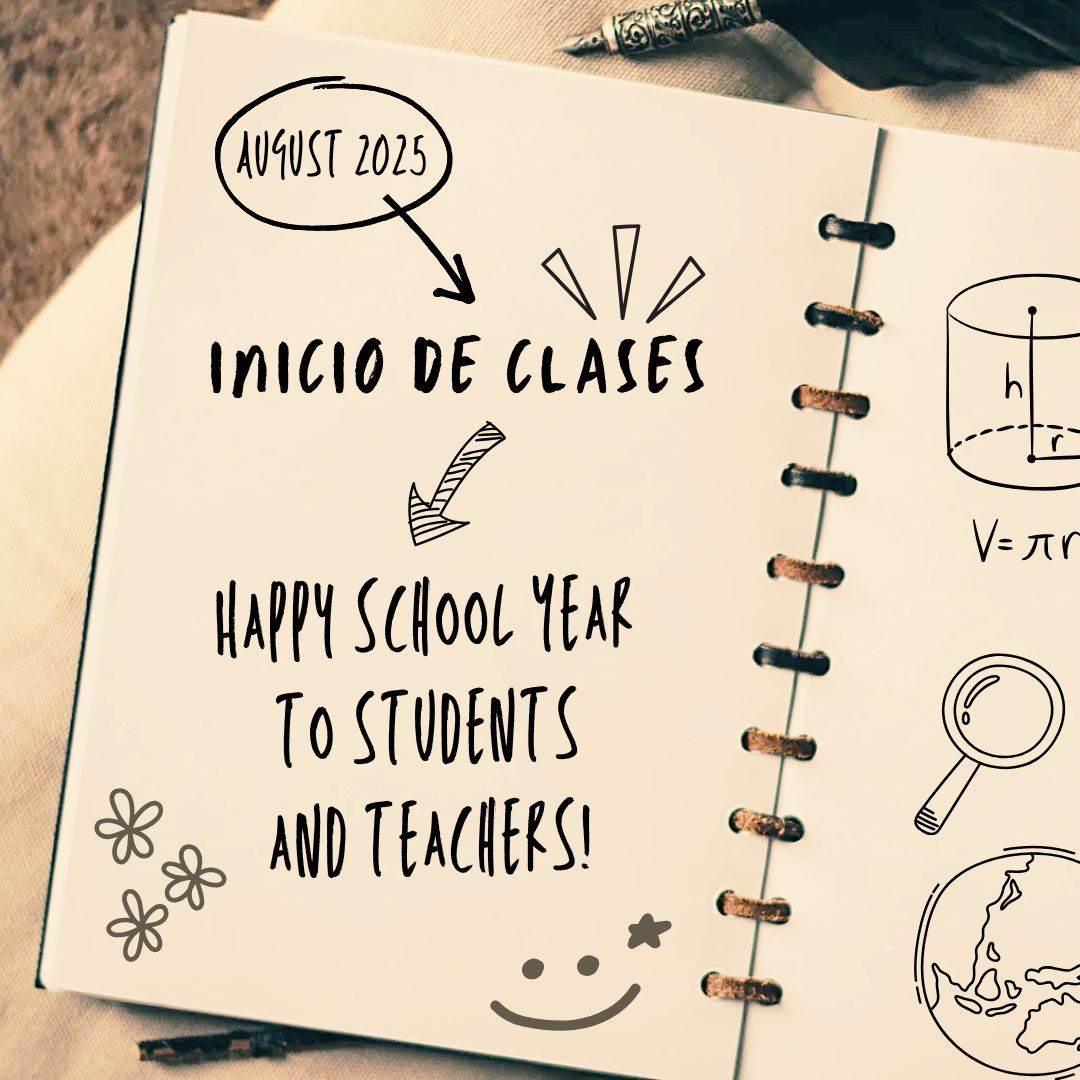 AUGUST 2025
INICIO DE CLASES
HAPPY SCHOOL YEAR
TO STUDENTS
AND TEACHERS!
h
r
V= πr